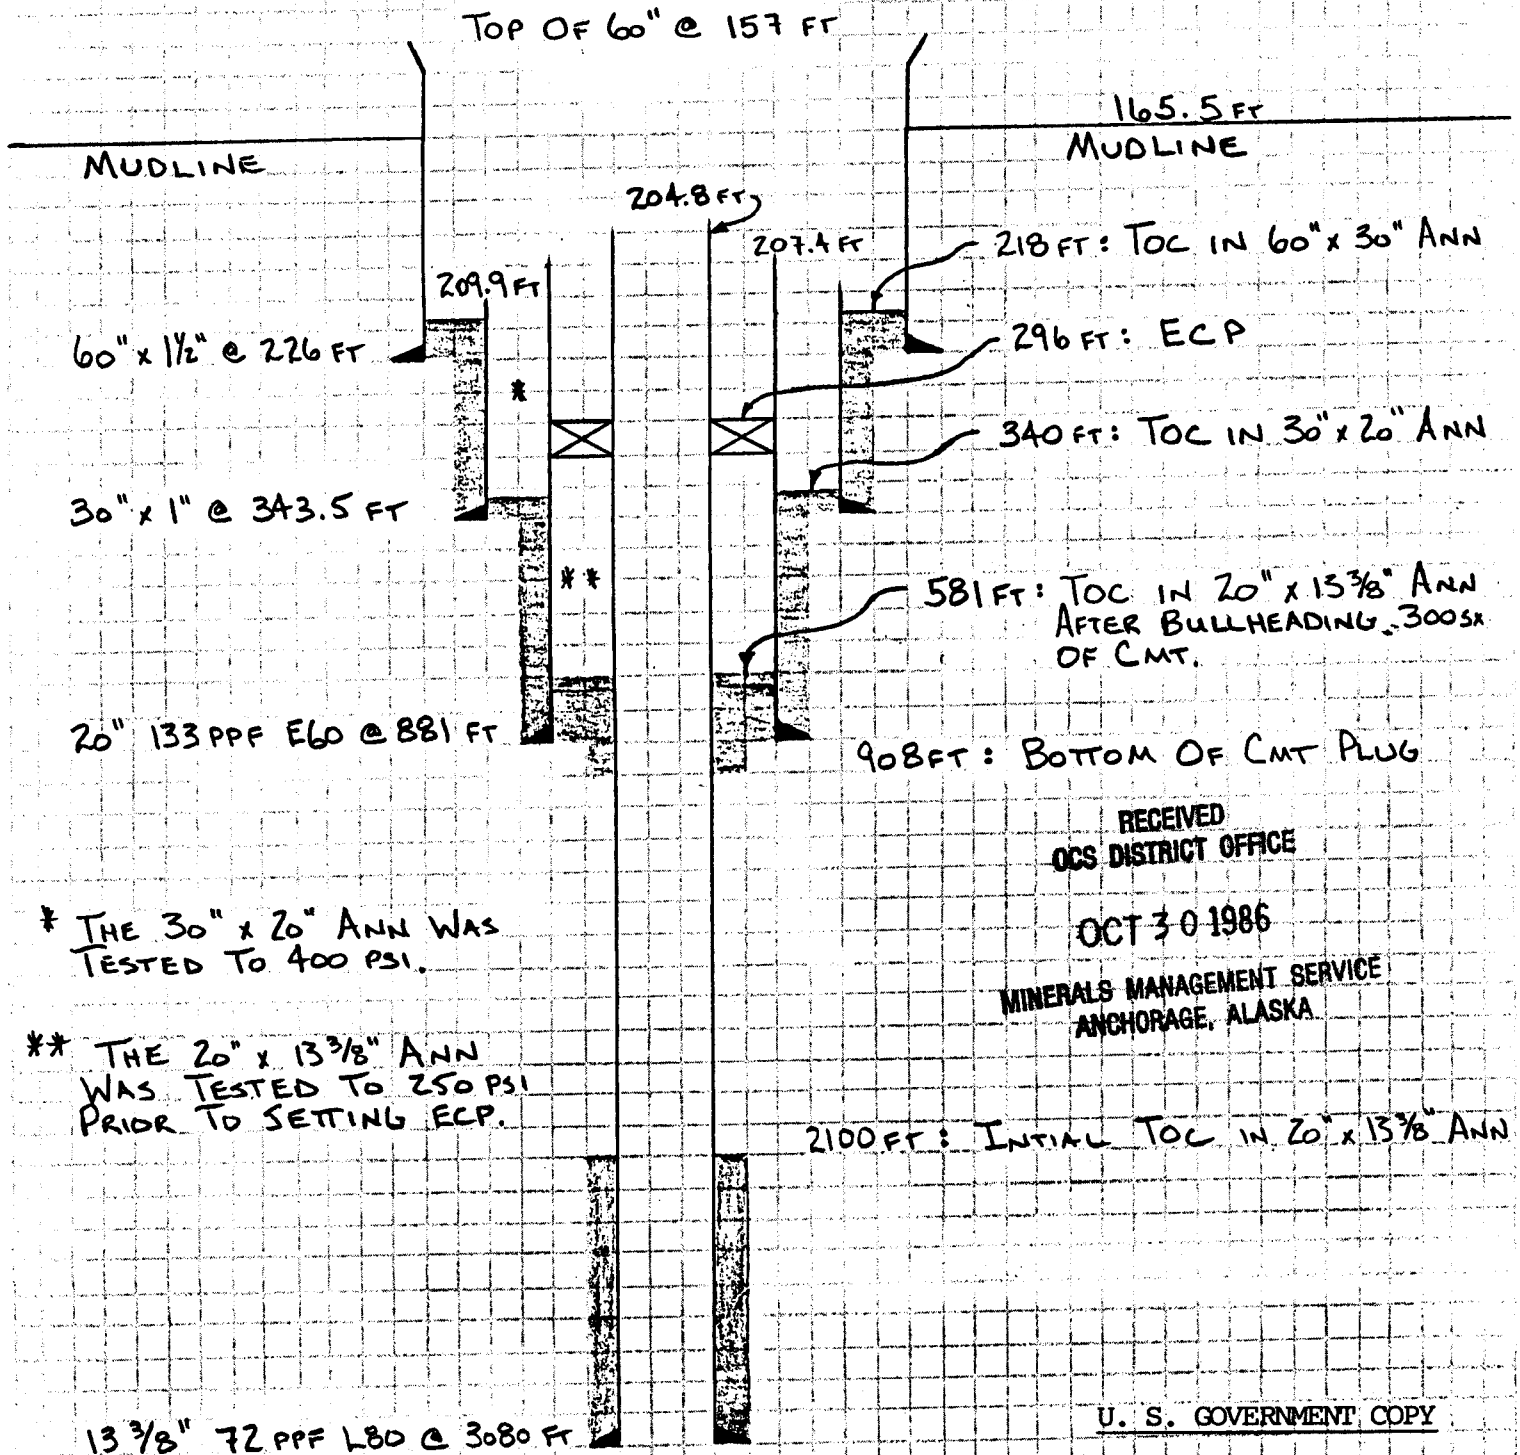 TOP OF 60" @ 157 FT
165.5 FT
MUDLINE
MUDLINE
204.8 FT
207.4 FT
218 FT: TOC IN 60" x 30" ANN
209.9 FT
60" x 1½" @ 226 FT
296 FT: ECP
*
340 FT: TOC IN 30" x 20" ANN
30" x 1" @ 343.5 FT
**
581 FT: TOC IN 20" x 13 3/8" ANN
AFTER BULLHEADING 300 SX
OF CMT.
20" 133 PPF E60 @ 881 FT
908 FT: BOTTOM OF CMT PLUG
RECEIVED
OCS DISTRICT OFFICE
OCT 30 1986
MINERALS MANAGEMENT SERVICE
ANCHORAGE, ALASKA
* THE 30" x 20" ANN WAS
TESTED TO 400 PSI.
** THE 20" x 13 3/8" ANN
WAS TESTED TO 250 PSI
PRIOR TO SETTING ECP.
2100 FT: INTIAL TOC IN 20" x 13 3/8" ANN
13 3/8" 72 PPF L80 @ 3080 FT
U. S. GOVERNMENT COPY